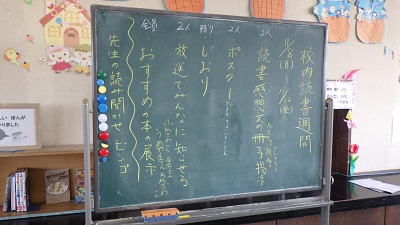 校内読書週間
11/8(月) 〜 11/12(金)
3人
読書感想文の冊子掲示
2人
ポスター
残り
しおり
2人
放送でみんなに知らせる
全員
おすすめの本の展示
先生の読み聞かせ ビンゴ